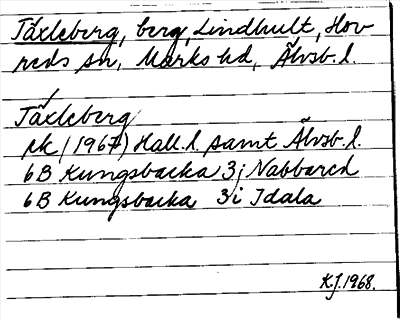 Täxleberg, berg, Lindhult, Hov
reds sn, Marks hd, Älvsb. l.
Täxleberg
rk (1967) Hall. l. samt Älvsb. l.
6B Kungsbacka 3j Nabbared
6B Kungsbacka 3i Idala
K.J. 1968.